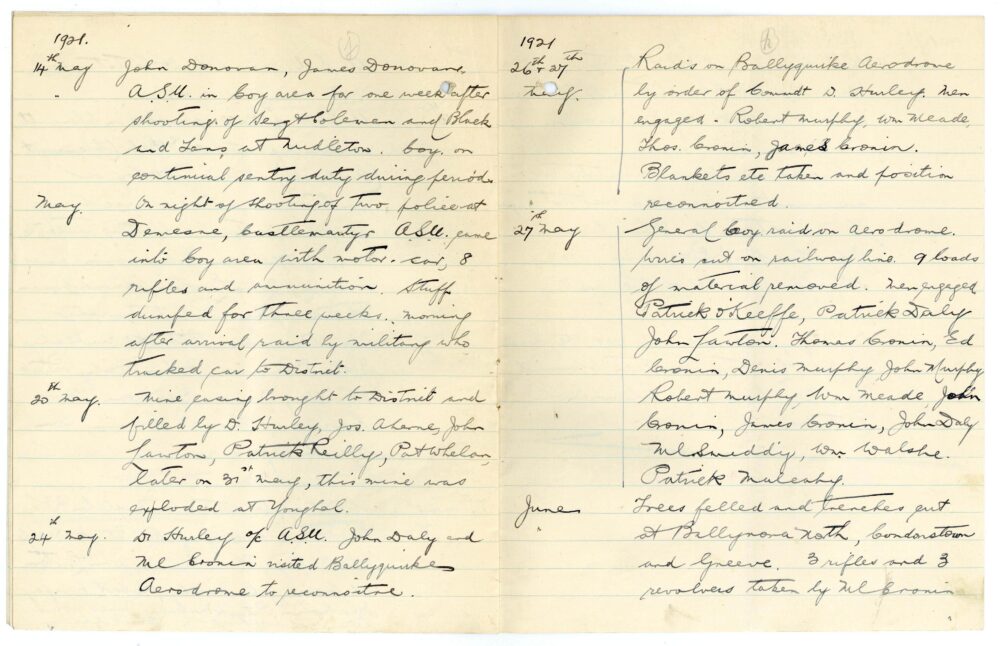 1921.
14th May John Donovan, James Donovan,
" A.S.U. in Coy area for one week after
shooting of Sergt Coleman and Black
and Tans, at Midleton. Coy. on
continual sentry duty during period.
May. On night of shooting of Two police at
Demesne, Castlemartyr A.S.U. came
into Coy area with motor-car, 8
rifles and ammunition. Stuff
dumped for three weeks. Morning
after arrival raid by military who
tracked car to District.
20th May. Mine casing brought to District and
filled by D. Hurley, Jos. Aherne, John
Lawton, Patrick Reilly, Pat Whelan,
later on 31st May, this mine was
exploded at Youghal.
24th May. D. Hurley o/c A.S.U. John Daly and
Ml Cronin visited Ballyquirke
Aerodrome to reconnoitre.
1921
26th & 27th Raids on Ballyquirke Aerodrome
May. by order of Commdt D. Hurley. Men
engaged - Robert Murphy, Wm Meade,
Thos. Cronin, James Cronin.
Blankets etc taken and position
reconnoitred.
27th May General Coy raid on Aerodrome.
Wires cut on railway line. 9 loads
of material removed. Men engaged
Patrick O'Keeffe, Patrick Daly
John Lawton. Thomas Cronin, Ed
Cronin, Denis Murphy John Murphy
Robert Murphy, Wm Meade, John
Cronin, James Cronin, John Daly
Ml Smiddy, Wm Walshe.
Patrick Mulcahy.
June Trees felled and trenches cut
at Ballynona North, Condonstown
and Greeve. 3 rifles and 3
revolvers taken by Ml Cronin